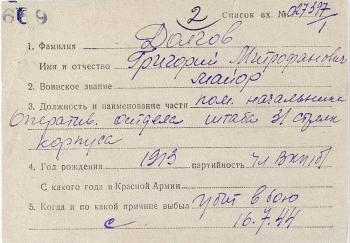 669
2 Список вх. № 027397/1
1. Фамилия Долгов
Имя и отчество Григорий Митрофанович
2. Воинское звание майор
3. Должность и наименование части пом. начальника
Оператив. отдела штаба 31 стрелк
корпуса
4. Год рождения 1913 партийность чл ВКП(б)
С какого года в Красной Армии
5. Когда и по какой причине выбыл убит в бою
с 16.7.44